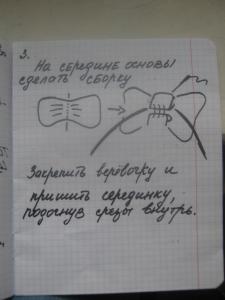 3.
На середине основы
сделать сборку
Закрепить верёвочку и
пришить серединку,
подогнув срезы внутрь.